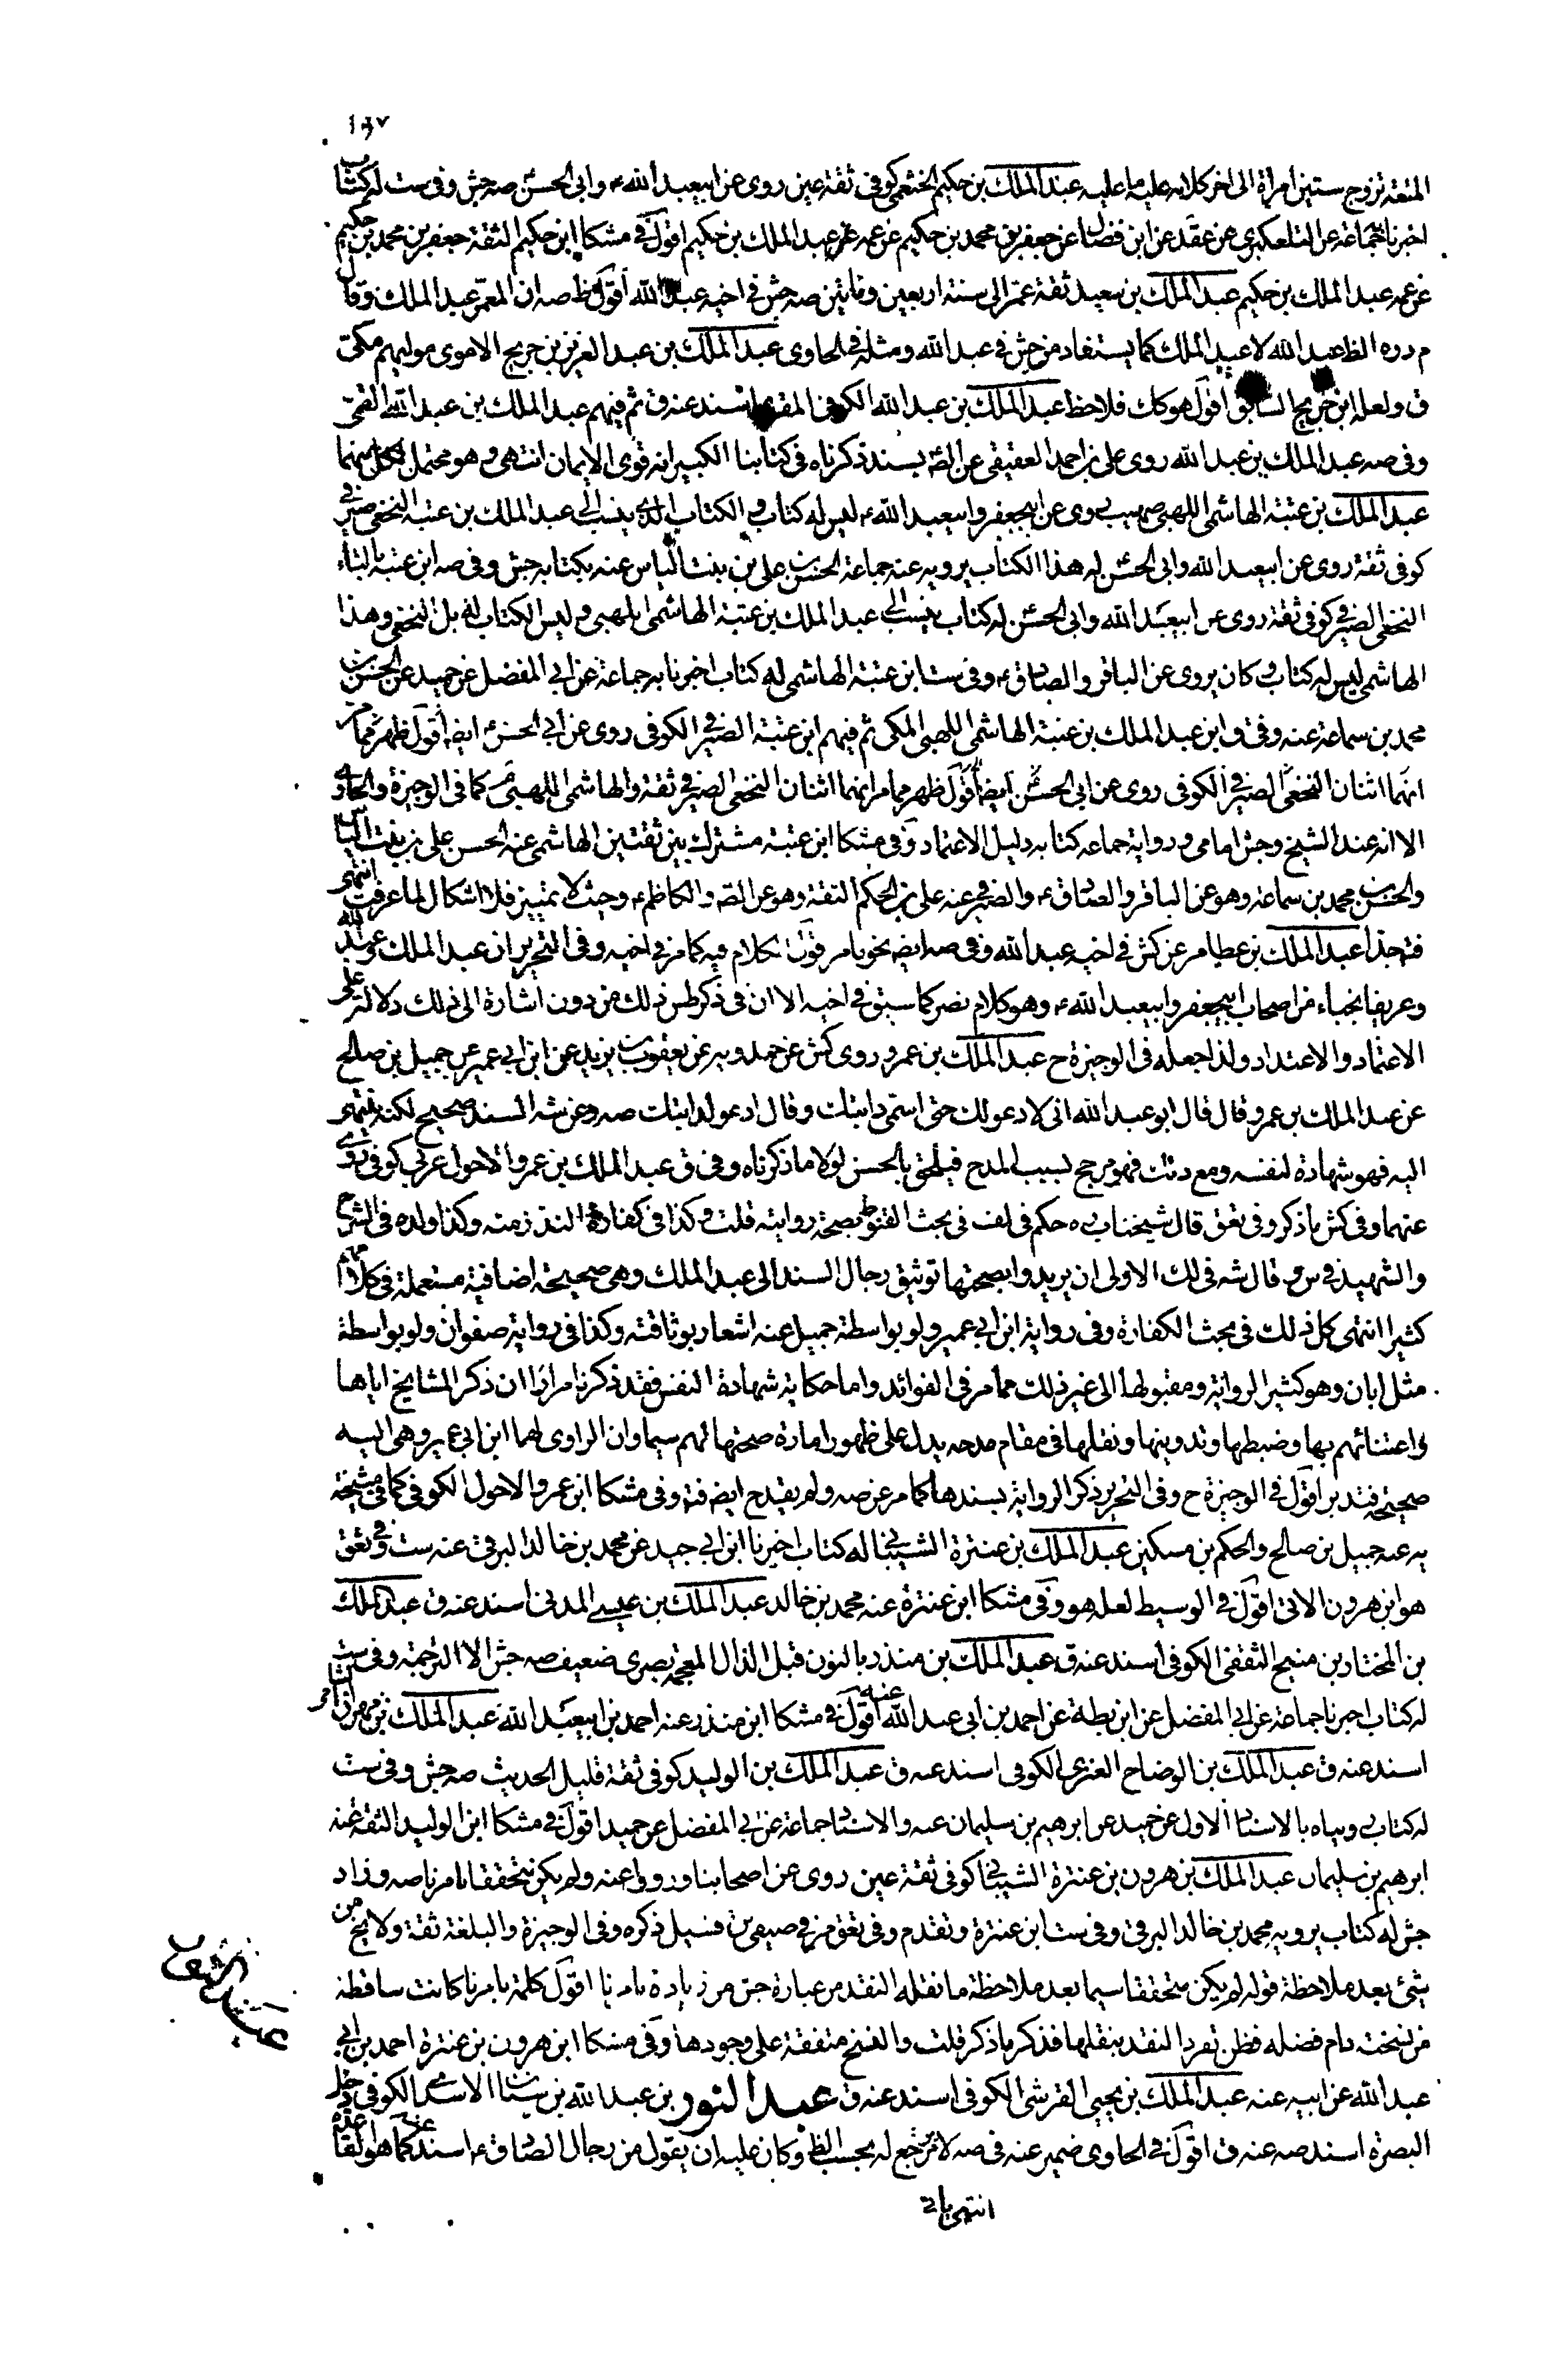 ١٩٧
المتعة تزوج ستين امراة الى اخر كلامه عليه ما عليه عبد الملك بن حكيم الخثعمى كوفى ثقة عين روى عن ابيعبد الله ء وابى الحسن ء صه جش وفى ست له كتاب
اخبرنا جماعة عن التلعكبرى عن عقد عن ابن فضال عن جعفر بن محمد بن حكيم عن عمه عبد الملك بن حكيم اقول فى مشكا ابن حكيم الثقة جعفر بن محمد بن حكيم
عن عمه عبد الملك بن حكيم عبد الملك بن سعيد ثقة عمر الى سنة اربعين ومايتين صه جش فى اخيه عبد الله اقول ظ صه ان المعمر عبد الملك وقال
م د ره الظ عبد الله لا عبد الملك كما يستفاد من جش فى عبد الله ومثله فى الحاوى عبد الملك بن عبد العزيز بن جريج الاموى موليهم مكى
ق ولعله ابن جريج السابق اقول هو كك فلاحظ عبد الملك بن عبد الله الكوفى المقرى اسند عنه ق ثم فيهم عبد الملك بن عبد الله القمى
وفى صه عبد الملك بن عبد الله روى على بن احمد العقيقى عن الصه بسند ذكرناه فى كتابنا الكبير انه قوى الايمان انتهى وهو محتمل لكل منهما
عبد الملك بن عتبة الهاشمى اللهبى صهيب روى عن ابيجعفر وابيعبد الله ء ليس له كتاب والكتاب الذى ينسب الى عبد الملك بن عتبة النخعى صيرفى
كوفى ثقة روى عن ابيعبد الله وابى الحسن له هذا الكتاب يرويه عنه جماعة الحسن بن على بن بنت الياس عنه بكتابه جش وفى صه ابن عتبة بالتاء
النخعى الصيرفى كوفى ثقة روى عن ابيعبد الله وابى الحسن له كتاب ينسب الى عبد الملك بن عتبة الهاشمى اللهبى وليس الكتاب له بل للنخعى وهذا
الهاشمى ليس له كتاب وكان يروى عن الباقر والصادق ء وفى ست ابن عتبة الهاشمى له كتاب اخبرنا به جماعة عن ابى المفضل عن حميد عن الحسن بن
محمد بن سماعة عنه وفى ق وابن عبد الملك بن عتبة الهاشمى اللهبى المكى ثم فيهم ابن عتبة الصيرفى الكوفى روى عن ابى الحسن ء ايضا اقول ظهر مما مر
انهما اثنان النخعى الصيرفى الكوفى روى عن ابى الحسن ايضا اقول ظهر مما مر انهما اثنان النخعى الصيرفى ثقة والهاشمى اللهبى كما فى الوجيزة والحاوى
الا انه عند الشيخ وجش امامى ورواية جماعه كتابه دليل الاعتماد وفى مشكا ابن عتبة مشترك بين ثقتين الهاشمى عنه الحسن على بن بنت الياس
والحسن بن محمد بن سماعة وهو عن الباقر والصادق ء والصيرفى عنه على بن الحكم الثقة وهو عن الصه والكاظم ء وحيث لا تمييز فلا اشكال لما عرفت انتهى
فتم جدا عبد الملك بن عطا مر عن كش فى اخيه عبد الله وفى صه ايضه نحو ما مر كلام فيه كما مر فى اخيه وفى التحرير ان عبد الملك عبد الله
وعريفا نجباء من اصحاب ابيجعفر وابيعبد الله ء وهو كلام نصر كما سبق فى اخيه الا ان فى ذكر طس ذلك من دون اشارة الى ذلك دلالة على
الاعتماد والاعتداد ولذا جعله فى الوجيزة ح عبد الملك بن عمرو روى كش عن حمدويه عن يعقوب بن يزيد عن ابن ابى عمير عن جميل بن صالح
عن عبد الملك بن عمرو قال قال ابو عبد الله انى لادعو لك حتى اسمى دابتك وقال ادعو لدابتك صه وعن شه السند صحيح لكنه ينتهى
اليه فهو شهادة لنفسه ومع ذلك فهو مرجح بسبب المدح فيلحق بالحسن لولا ما ذكرناه وفى ق عبد الملك بن عمرو الاحول عربى كوفى روى
عنهما وفى كش ما ذكر وفى تعق قال شيخنا حكم فى لف فى بحث القنوط بصحة روايته قلت وكذا فى كفارة النذر منه وكذا ولده فى الشرح
والشهيد فى س وقال شه فى لك الاولى ان يريدوا بصحتها توثيق رجال السند الى عبد الملك وهى صحيحة اضافية مستعملة فى كلامهم
كثيرا انتهى كل ذلك فى مبحث الكفارة وفى رواية ابن ابى عمير ولو بواسطة جميل عنه اشعار بوثاقته وكذا فى رواية صفوان ولو بواسطة
مثل ابان وهو كثير الرواية ومقبولها الى غير ذلك مما مر فى الفوائد واما حكاية شهادة النفس فقد ذكرنا مرارا ان ذكر المشايخ اياها
واعتنائهم بها وضبطها وتدوينها ونقلها فى مقام مدحه يدل على ظهور امارة صحتها لهم سيما وان الراوى لهما ابن ابى عمير وهى اليه
صحيحة فتدبر اقول فى الوجيزة ح وفى التحرير ذكر الرواية بسندها كما مر عن صه ولم يقدح ايضه فتم وفى مشكا ابن عمرو الاحول الكوفى كما فى مشيخة
يه عنه جميل بن صالح والحكم بن مسكين عبد الملك بن عنترة الشيبانى له كتاب اخبرنا ابن ابى جيد عن محمد بن خالد البرقى عنه ست وفى تعق
هو ابن هرون الاتى اقول فى الوسيط لعله هو وفى مشكا ابن عنترة عنه محمد بن خالد عبد الملك بن عيسى المدنى اسند عنه ق عبد الملك
بن المختار بن منيح الثقفى الكوفى اسند عنه ق عبد الملك بن منذر بالنون قبل الذال المعجمة بصرى ضعيف صه جش الا الترجمة وفى ست
له كتاب اخبرنا جماعة عن ابى المفضل عن ابن بطة عن احمد بن ابى عبد الله عنه اقول فى مشكا ابن منذر عنه احمد بن ابيعبد الله عبد الملك بن مهران
اسند عنه ق عبد الملك بن الوضاح العنزى الكوفى اسند عنه ق عبد الملك بن الوليد كوفى ثقة قليل الحديث صه جش وفى ست
له كتاب رويناه بالاسناد الاول عن حميد عن ابرهيم بن سليمان عنه والاسناد جماعة عن ابى المفضل عن حميد اقول فى مشكا ابن الوليد الثقة عنه
ابرهيم بن سليمان عبد الملك بن هرون بن عنترة الشيبانى كوفى ثقة عين روى عن اصحابنا ورووا عنه ولم يكن متحققا بامرنا صه وزاد
جش له كتاب يرويه محمد بن خالد البرقى وفى ست ابن عنترة وتقدم وفى تعق مر فى صيفى بن فسيل ذكره وفى الوجيزة والبلغة ثقة ولا يخ من
شئ بعد ملاحظة قوله لم يكن متحققا سيما بعد ملاحظة ما نقله النقد من عبارة جش من زيادة بامرنا اقول كلمة بامرنا كانت ساقطة
من نسخته دام فضله فظن تفرد النقد بنقلها فذكر ما ذكر قلت والنسخ متفقة على وجودها وفى مشكا ابن هرون بن عنترة احمد بن ابى
عبد الله عن ابيه عنه عبد الملك بن يحيى القرشى الكوفى اسند عنه ق عبد النور بن عبد الله بن سنان الاسدى الكوفى دخل
البصرة اسند عنه صه ق اقول فى الحاوى ضمير عنه فى صه لا مرجع له بحسب الظ وكان عليه ان يقول من رجال الصادق ء اسند عنه كما هو
انتهى